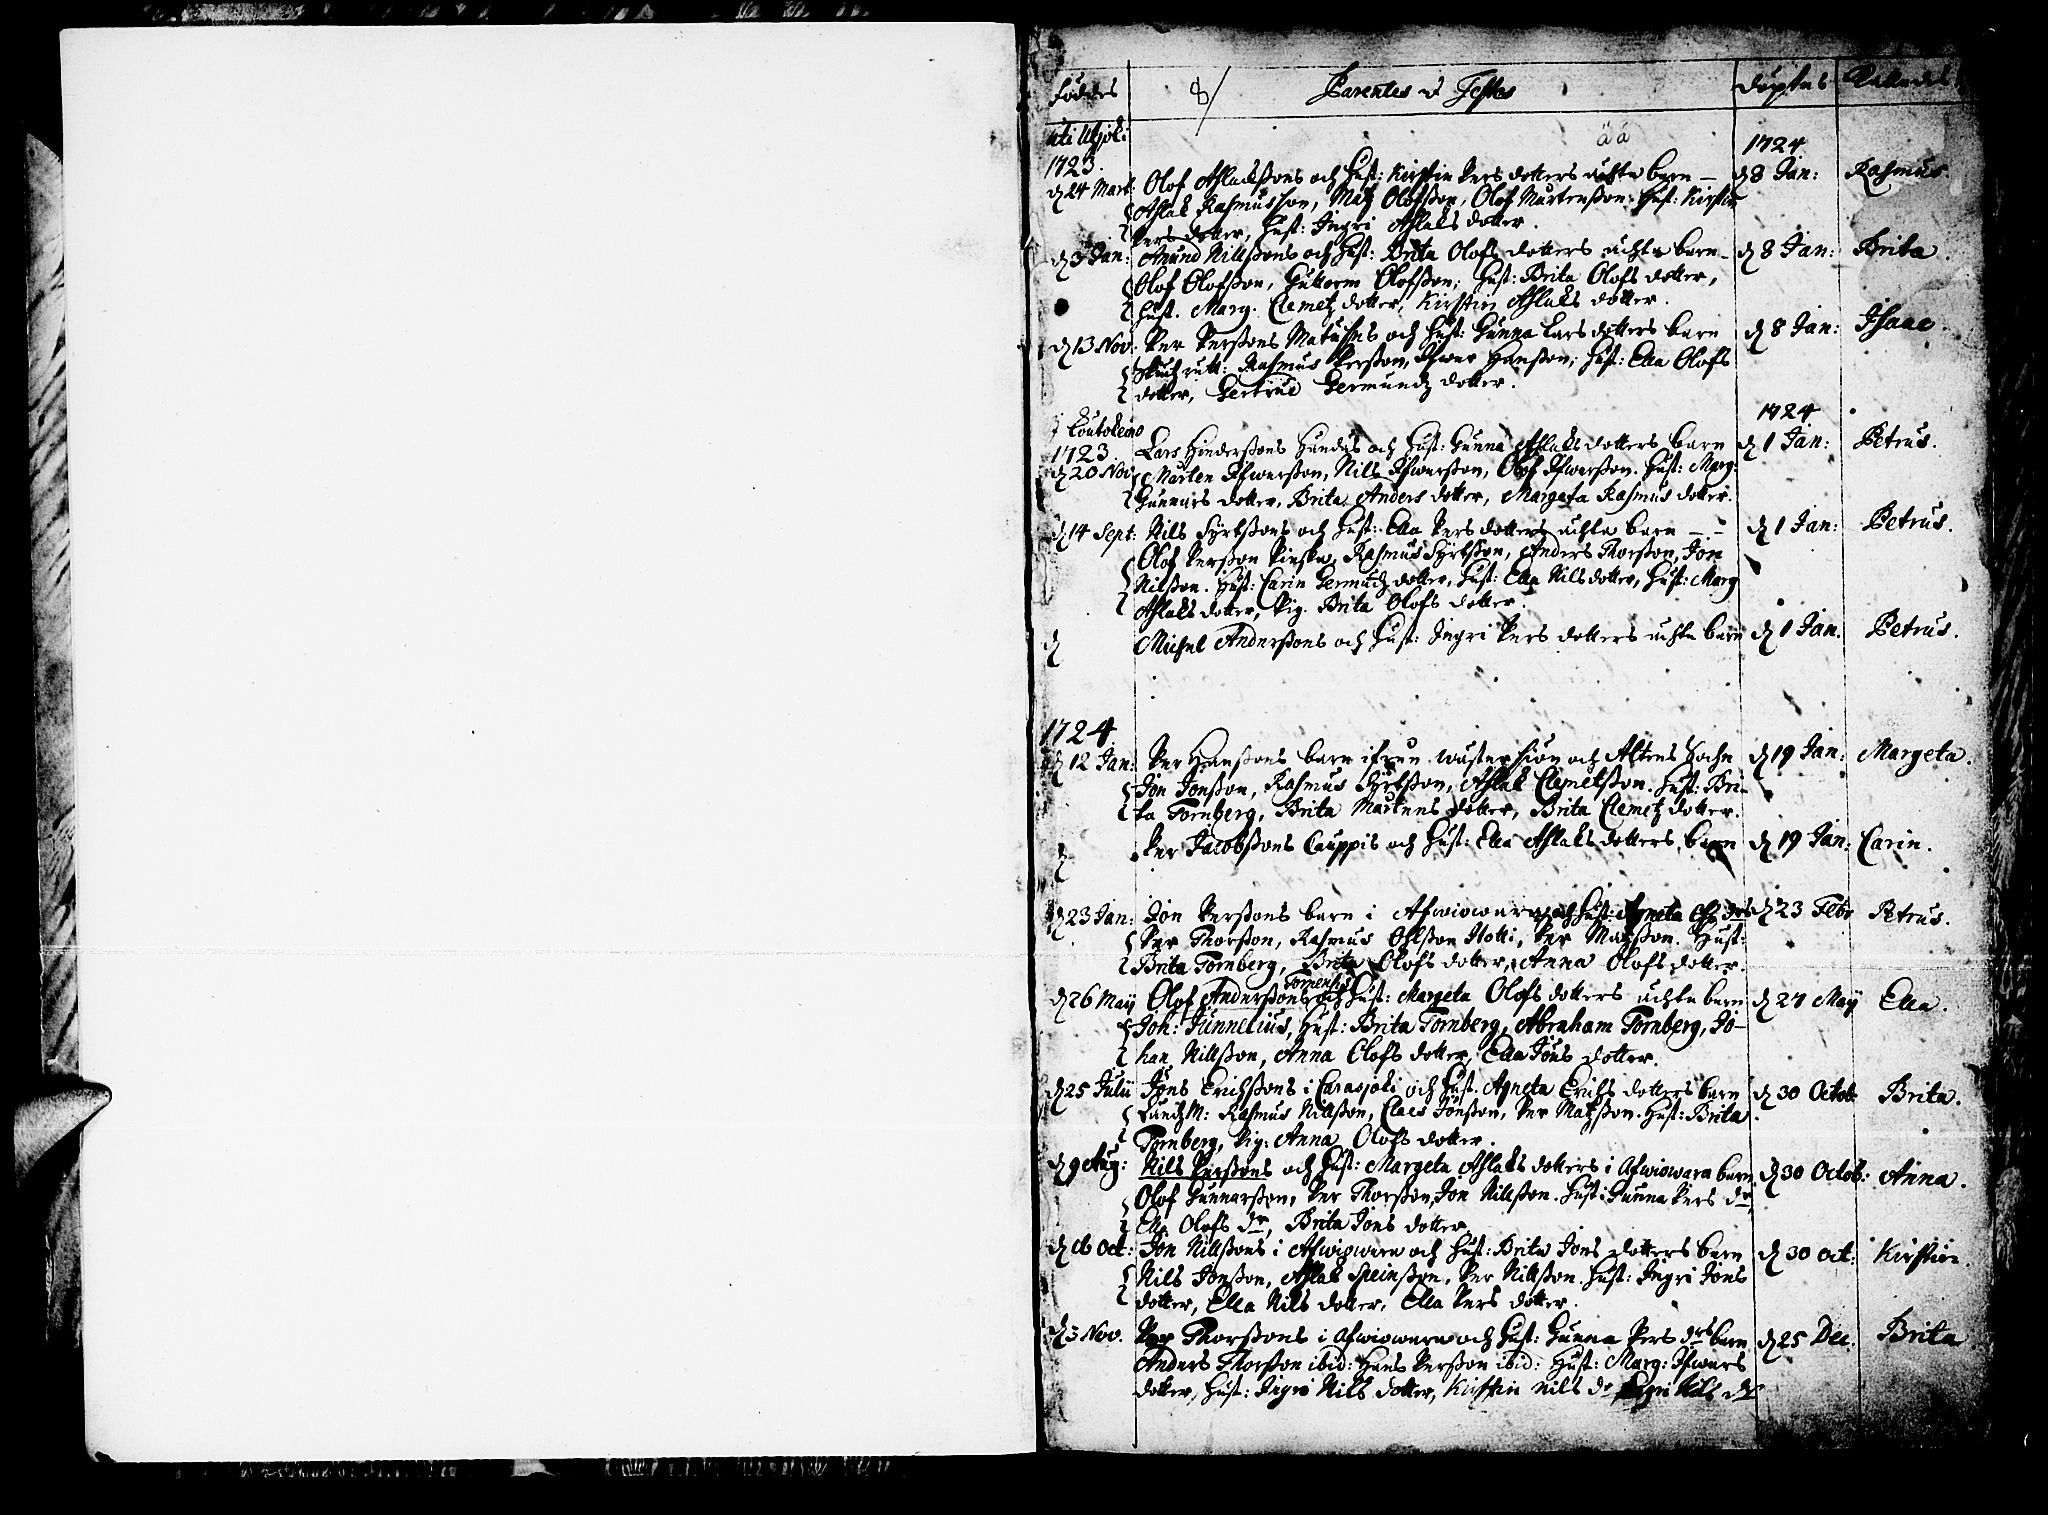 Föddes 8/ Parentes et Testes Döptes Kallades
uti Utsjoki
1723. 1724
d 24 Mart: Olof Aslackssons och Hust: Kirstin Pers dotters ächta barn – d 8 Jan: Rasmus.
Aslak Rasmusson, Matz Olofsson, Olof Mårtensson. Hust: Kirstin
Pers dotter, Hust: Ingri Aslaks dotter.
d 3 Jan: Anund Nillssons och Hust: Brita Olofs dotters ächta barn – d 8 Jan: Brita.
Olof Olofsson, Guttorm Olofsson, Hust: Brita Olofs dotter,
Hust. Marg. Clemetz dotter, Kirstin Aslaks dotter.
d 13 Nov: Per Perssons Matuses och Hust: Gunna Lars dotters barn d 8 Jan: Isaac.
Rasmus Persson, Ifwar Hansson, Hust: Ella Olofs
dotter, Gertrud Germundz dotter.
I Koutokeino 1724
1723. Lars Hinderssons och Hust: Gunna Aslaks dotters barn d 1 Jan: Petrus.
d 20 Nov. Mårten Ifwarsson, Nils Ifwarsson, Olof Ifwarsson. Hust: Marg:
Gunnars dotter, Brita Anders dotter, Margeta Rasmus dotter.
d 14 Sept: Nils Syrtssons och Hust: Ella Pers dotters ächta barn – – d 1 Jan: Petrus.
Olof Persson, Rasmus Syrtsson, Anders Thorsson, Jon
Nilsson. Hust: Carin Germundz dotter, Hust: Ella Nils dotter, Hust: Marg
Aslaks dotter, Pig. Brita Olofs dotter.
d Michel Anderssons och Hust: Ingri Pers dotters ächta barn d 1 Jan. Petrus.
1724.
d 12 Jan: Per Hanssons barn ifrån och Altens Sochn d 19 Jan: Margeta.
Jon Jonsson, Rasmus Syrtsson, Aslak Clemetsson. Hust: Bri-
ta Tornberg, Brita Mårtens dotter, Brita Clemetz dotter.
d Per Jacobssons Cauppis och Hust: Ella Aslaks dotters barn d 19 Jan: Carin.
d 23 Jan: Jon Perssons barn i Afwiowara och Hust: Agneta d 23 Febr Petrus.
Per Thorsson, Rasmus Ohlsson Hotti, Per Matsson. Hust:
Brita Tornberg, Brita Olofs dotter, Anna Olofs dotter.
d 26 Maij Olof Anderssons och Hust: Margeta Olofs dotters ächta barn d 27 Maij Ella.
Joh: Tunnelius, Hust: Brita Tornberg, Abraham Tornberg, Jo-
han Nillsson, Anna Olofs dotter, Ella Jons dotter.
d 25 Julii Jöns Erichssons i Carasjoki och Hust. Agneta Erichs dotters barn d 30 Octob: Brita.
Rasmus Nillsson, Claes Jönsson, Per Matsson. Hust: Brita
Tornberg, Pig: Anna Olofs dotter.
d 9 Aug: Nils Perssons och Hust: Margeta Aslaks dotters i Afwiowara barn d 30 Octob: Anna.
Olof Gunnarsson, Per Thorsson, Jon Nillsson. Hust: Gunna Pers dr
Ella Olofs dr, Brita Jons dotter
d 16 Oct: Jon Nillssons i Afwiowara och Hust: Brita Jons dotters barn d 30 Oct: Kirstin.
Nils Jonsson, Aslak Speinsson, Per Nillsson. Hust: Ingri Jons
dotter, Ella Nils dotter, Ella Pers dotter.
d 3 Nov. Per Thorssons i Afwiowara och Hust: Gunna Pers drs barn d 25 Dec: Brita
Anders Thorsson ibid: Hans Persson ibid: Hust: Marg: Ifwars
dotter, Hust: Ingri Nils dotter, Kirstin Nils dr Ingri Nils dr